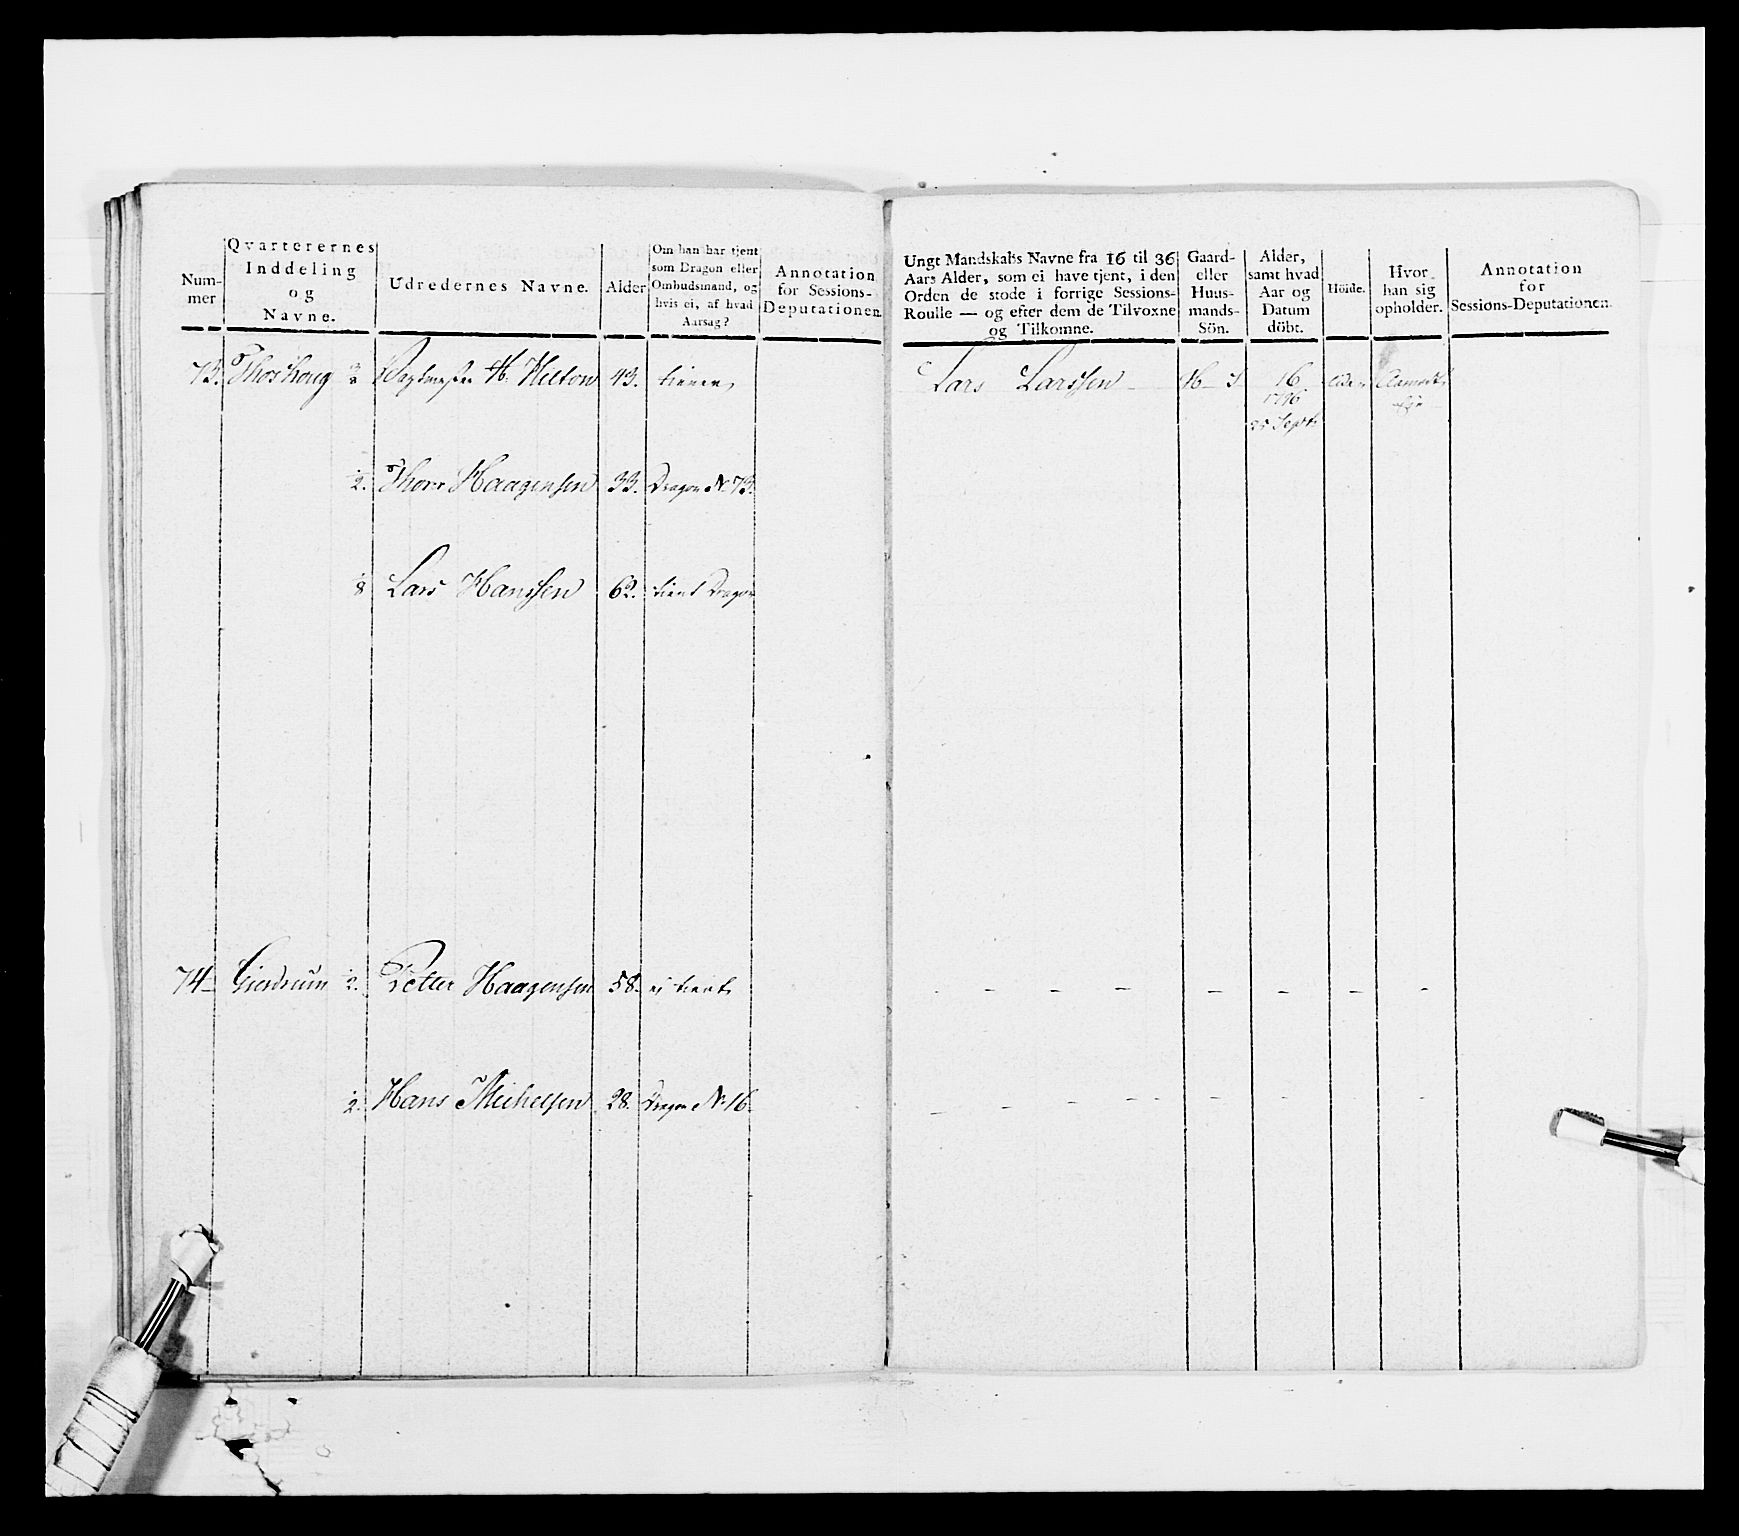 Num-
mer
Qvarterernes
Inddeling
og
Navne.
Udredernes Navne.
Alder
Om han har tjent
som Dragon eller
Ombudsmand, og
hvis ei, af hvad
Aarsag?
Annotation
for Sessions-
Deputationen.
73. Thoshoug 3/8 H: Hilton 43. tiener
1/2. Thore Haagensen 33. Dragon N. 73.
1/8 Lars Hanssen 62. tient Dragon
74- Gierdrum 1/2. Petter Haagensen 58. ei tient
1/2. Hans Michelsen 28. Dragon N. 16.
Ungt Mandskabs Navne fra 16 til 36
Aars Alder, som ei have tjent, i den
Orden de stode i forrige Sessions-
Roulle — og efter dem de Tilvoxne
og Tilkomne.
Gaard-
eller
Huus-
mands-
Sön.
Alder,
samt hvad
Aar og
Datum
döbt.
Höide.
Hvor
han sig
opholder.
Annotation
for
Sessions-Deputationen.
Lars Larssen - H- S 16.
1796
25 Septb
- - - - - - - -
- - - - - - - - -